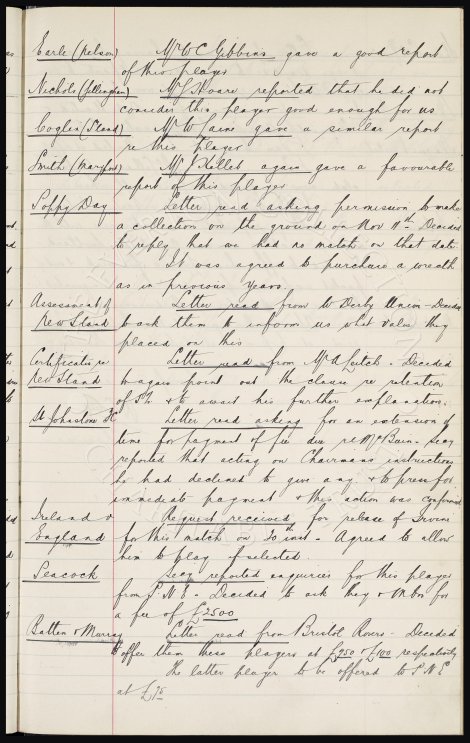 Earle (Nelson) Mr W C Gibbins gave a good report
of this player
Nichols (Gillingham) Mr J Hoare reported that he did not
consider this player good enough for us
Coglin (Stand) Mr W Caine gave a similar report
re this player
Smith (Maryport) Mr J Kellet again gave a favourable
report of this player
Poppy Day Letter read asking permission to make
a collection on the ground on Nov 11th. Decided
to reply that we had no match on that date
It was agreed to purchase a wreath
as in previous years
Assessment of Letter read from W Derby Union - Decided
New Stand to ask them to inform us what value they
placed on this
Certificates re Letter read from Mr A Leitch - Decided
New Stand to again point out the clause re retention
of & to await his further explanation.
St Johnstone FC Letter read asking for an extension of
time for payment of fee due re Bain - Secy
reported that acting on Chairmans instructions
he had declined to give any & to press for
immediate payment & this action was confirmed
Ireland v Request received for release of Irvine
England for this match on 20th inst - Agreed to allow
him to play if selected.
Peacock Secy reported enquiries for this player
from P.N.E - Decided to ask they & Mbro for
a fee of £2500
Ratten & Murray Letter read from Bristol Rovers - Decided
to offer them these players at £250 & £100 respectively
The latter player to be offered to P.N.E
at £75